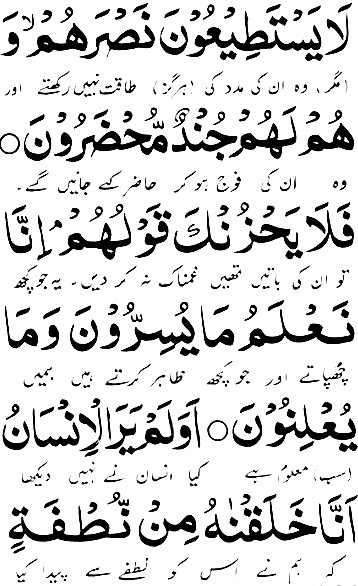 لَا يَسْتَطِيْعُوْنَ نَصْرَهُمْ ۙ وَ
(مگر) وہ ان کی مدد کی (ہرگز) طاقت نہیں رکھتے اور
هُمْ لَهُمْ جُنْدٌ مُّحْضَرُوْنَ ○
وہ ان کی فوج ہو کر حاضر کئے جائیں گے۔
فَلَا يَحْزُنْكَ قَوْلُهُمْ ۘ اِنَّا
تو ان کی باتیں تمھیں غمناک نہ کر دیں۔ یہ جو کچھ
نَعْلَمُ مَا يُسِرُّوْنَ وَمَا
چھپاتے اور جو کچھ ظاہر کرتے ہیں ہمیں
يُعْلِنُوْنَ ○ اَوَلَمْ يَرَ الْاِنْسَانُ
(سب) معلوم ہے کیا انسان نے نہیں دیکھا
اَنَّا خَلَقْنٰهُ مِنْ نُّطْفَةٍ
کہ ہم نے اس کو نطفے سے پیدا کیا